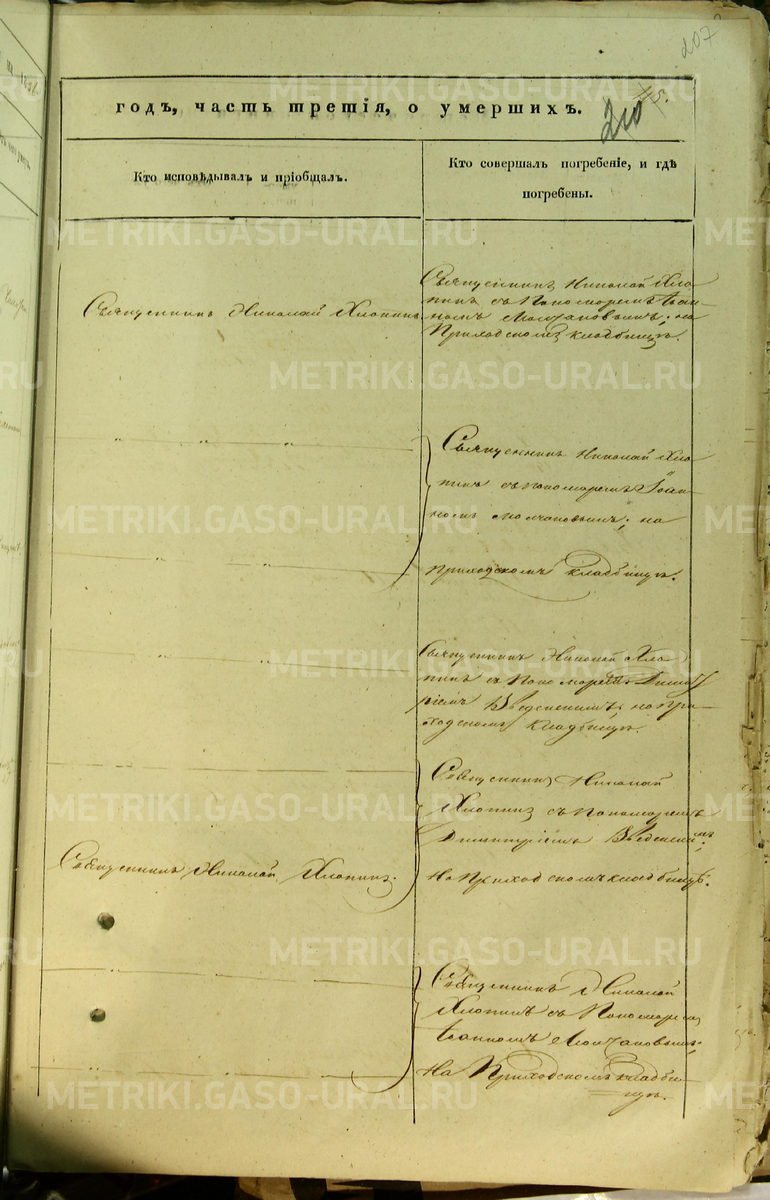 207
годъ, часть третія, о умершихъ.
210
Кто исповѣдывалъ и пріобщалъ.
Кто совершалъ погребеніе, и гдѣ
погребены.
METRIKI.GASO-URAL.RU
Священникъ Николай Хлопинъ.
Священникъ Николай Хло-
пинъ съ Пономаремъ Іоан-
номъ Молчановымъ; на
Приходскомъ кладбищѣ.
Священникъ Николай Хло-
пинъ съ пономаремъ Іоан-
номъ Молчановымъ; на
приходскомъ кладбищѣ.
Священникъ Николай Хло-
пинъ съ Пономаремъ Димит-
ріемъ Введенскимъ; на При-
ходскомъ кладбищѣ.
Священникъ Николай
Хлопинъ съ Пономаремъ
Димитріемъ Введенскимъ;
На Приходскомъ кладбищѣ.
Священникъ Николай Хлопинъ.
Священникъ Николай
Хлопинъ съ Пономаремъ
Іоанномъ Молчановымъ;
На Приходскомъ кладби-
щѣ.